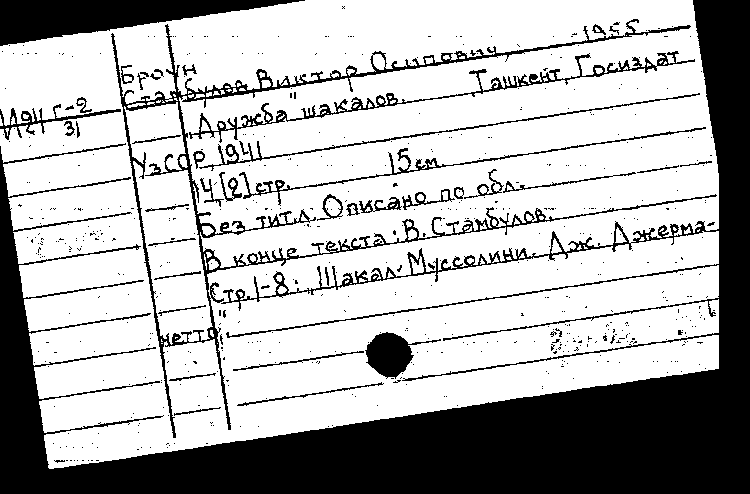 Броун
Стамбулов, Виктор Осипович, -1955.
"Дружба" шакалов. Ташкент, Госиздат
УзССР, 1941
14, [2] стр. 15 см.
Без тит. л. Описано по обл.
В конце текста: В. Стамбулов.
Стр. 1-8: "Шакал-Муссолини. Дж. Джерма-
нетто".
И24 Г-2
31